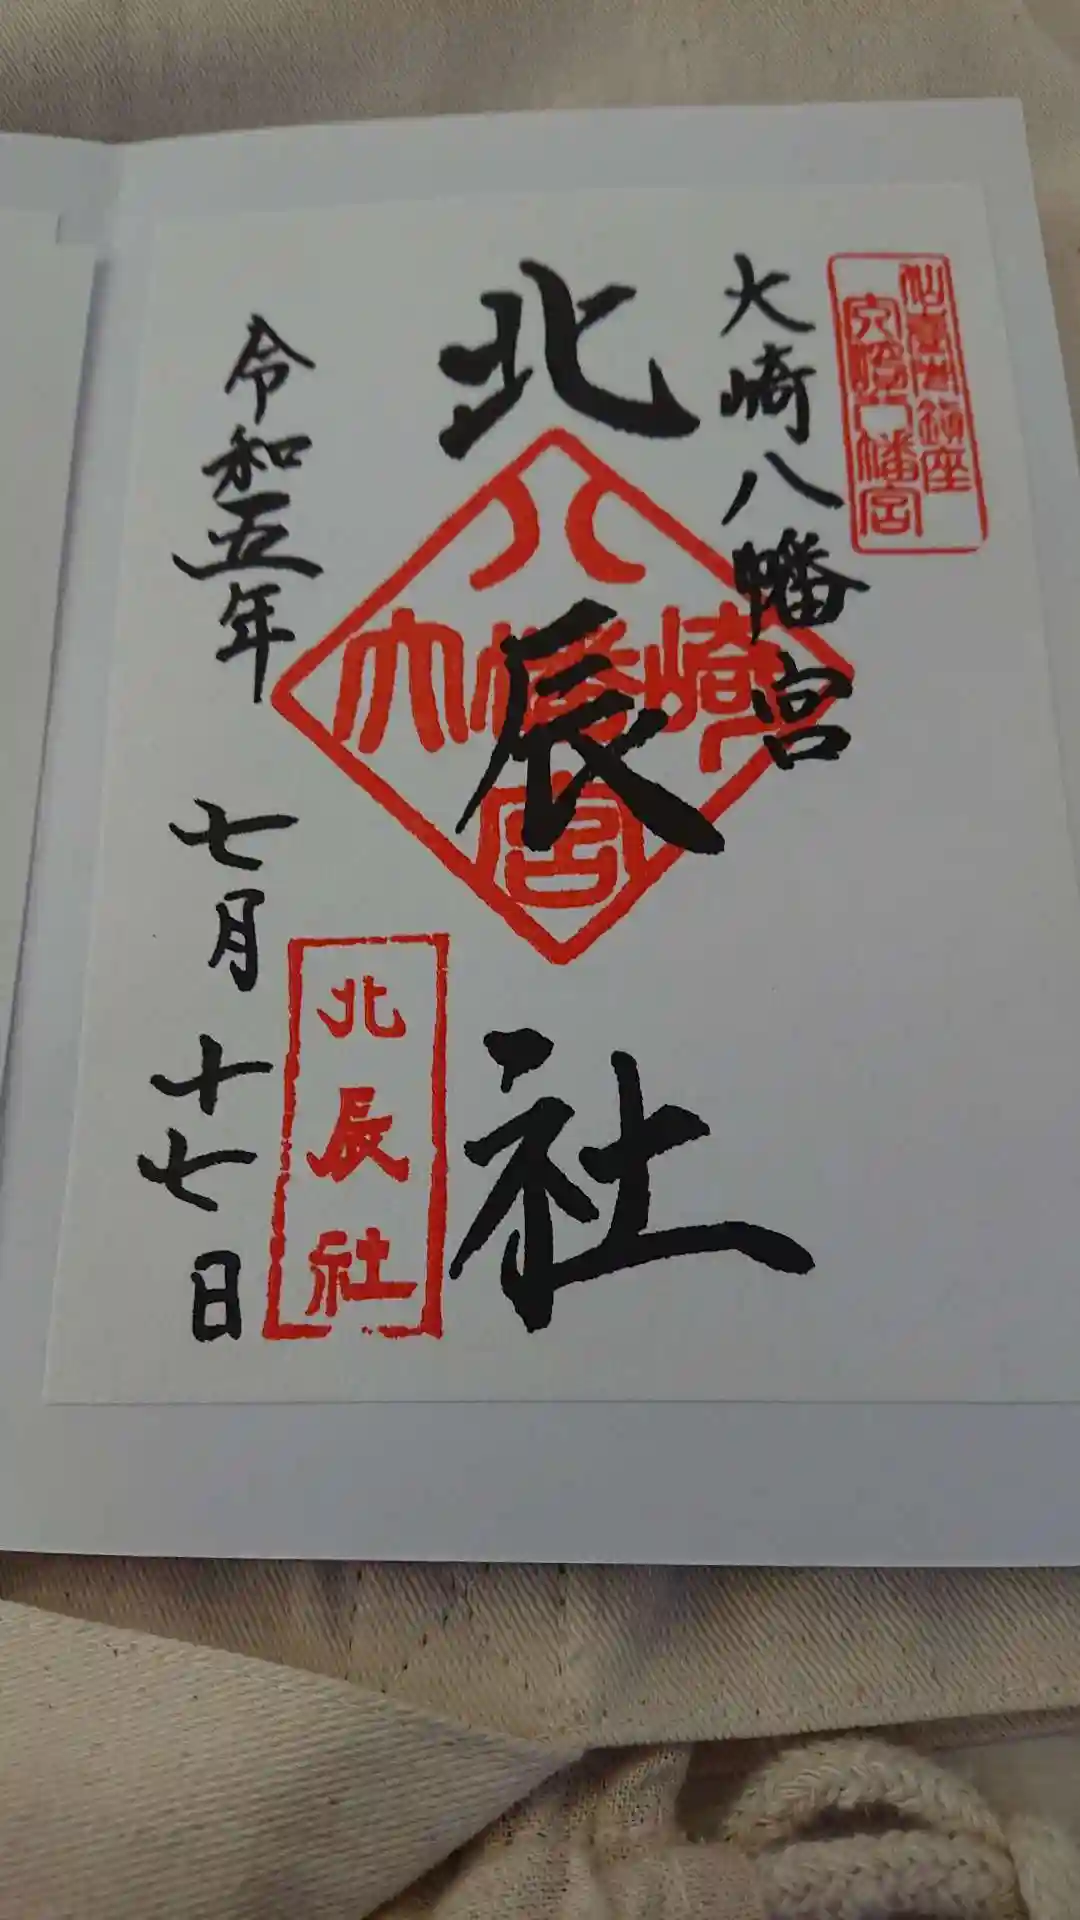 仙臺市鎮座
大崎八幡宮
大崎八幡宮
北辰社
八
大幡崎
宮
北辰社
令和五年 七月十七日